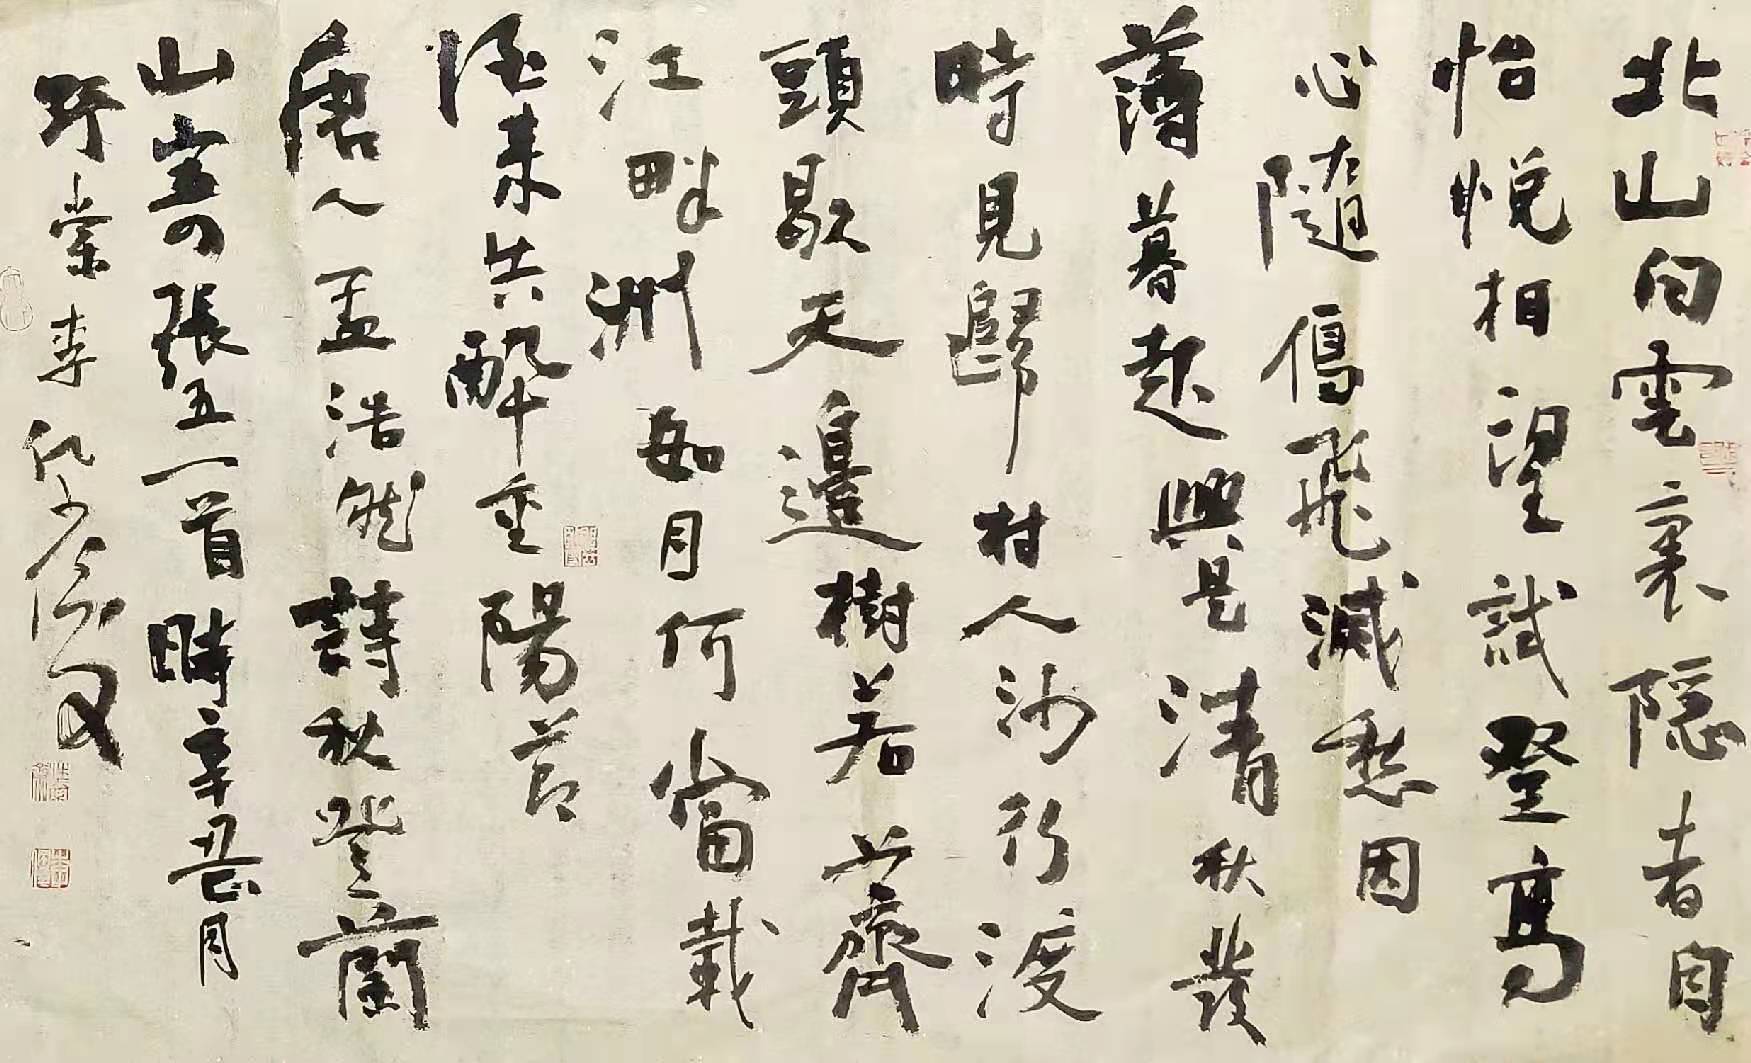 北山白雲裏隐者自
怡悅相望試登高
心隨鴈飛滅愁因
薄暮起興是清秋發
時見歸村人沙行渡
頭歇天邊樹若薺
江畔洲如月何當載
酒来共醉重陽節
唐人孟浩然詩秋登蘭
山寄張五一首時辛丑月
棠李